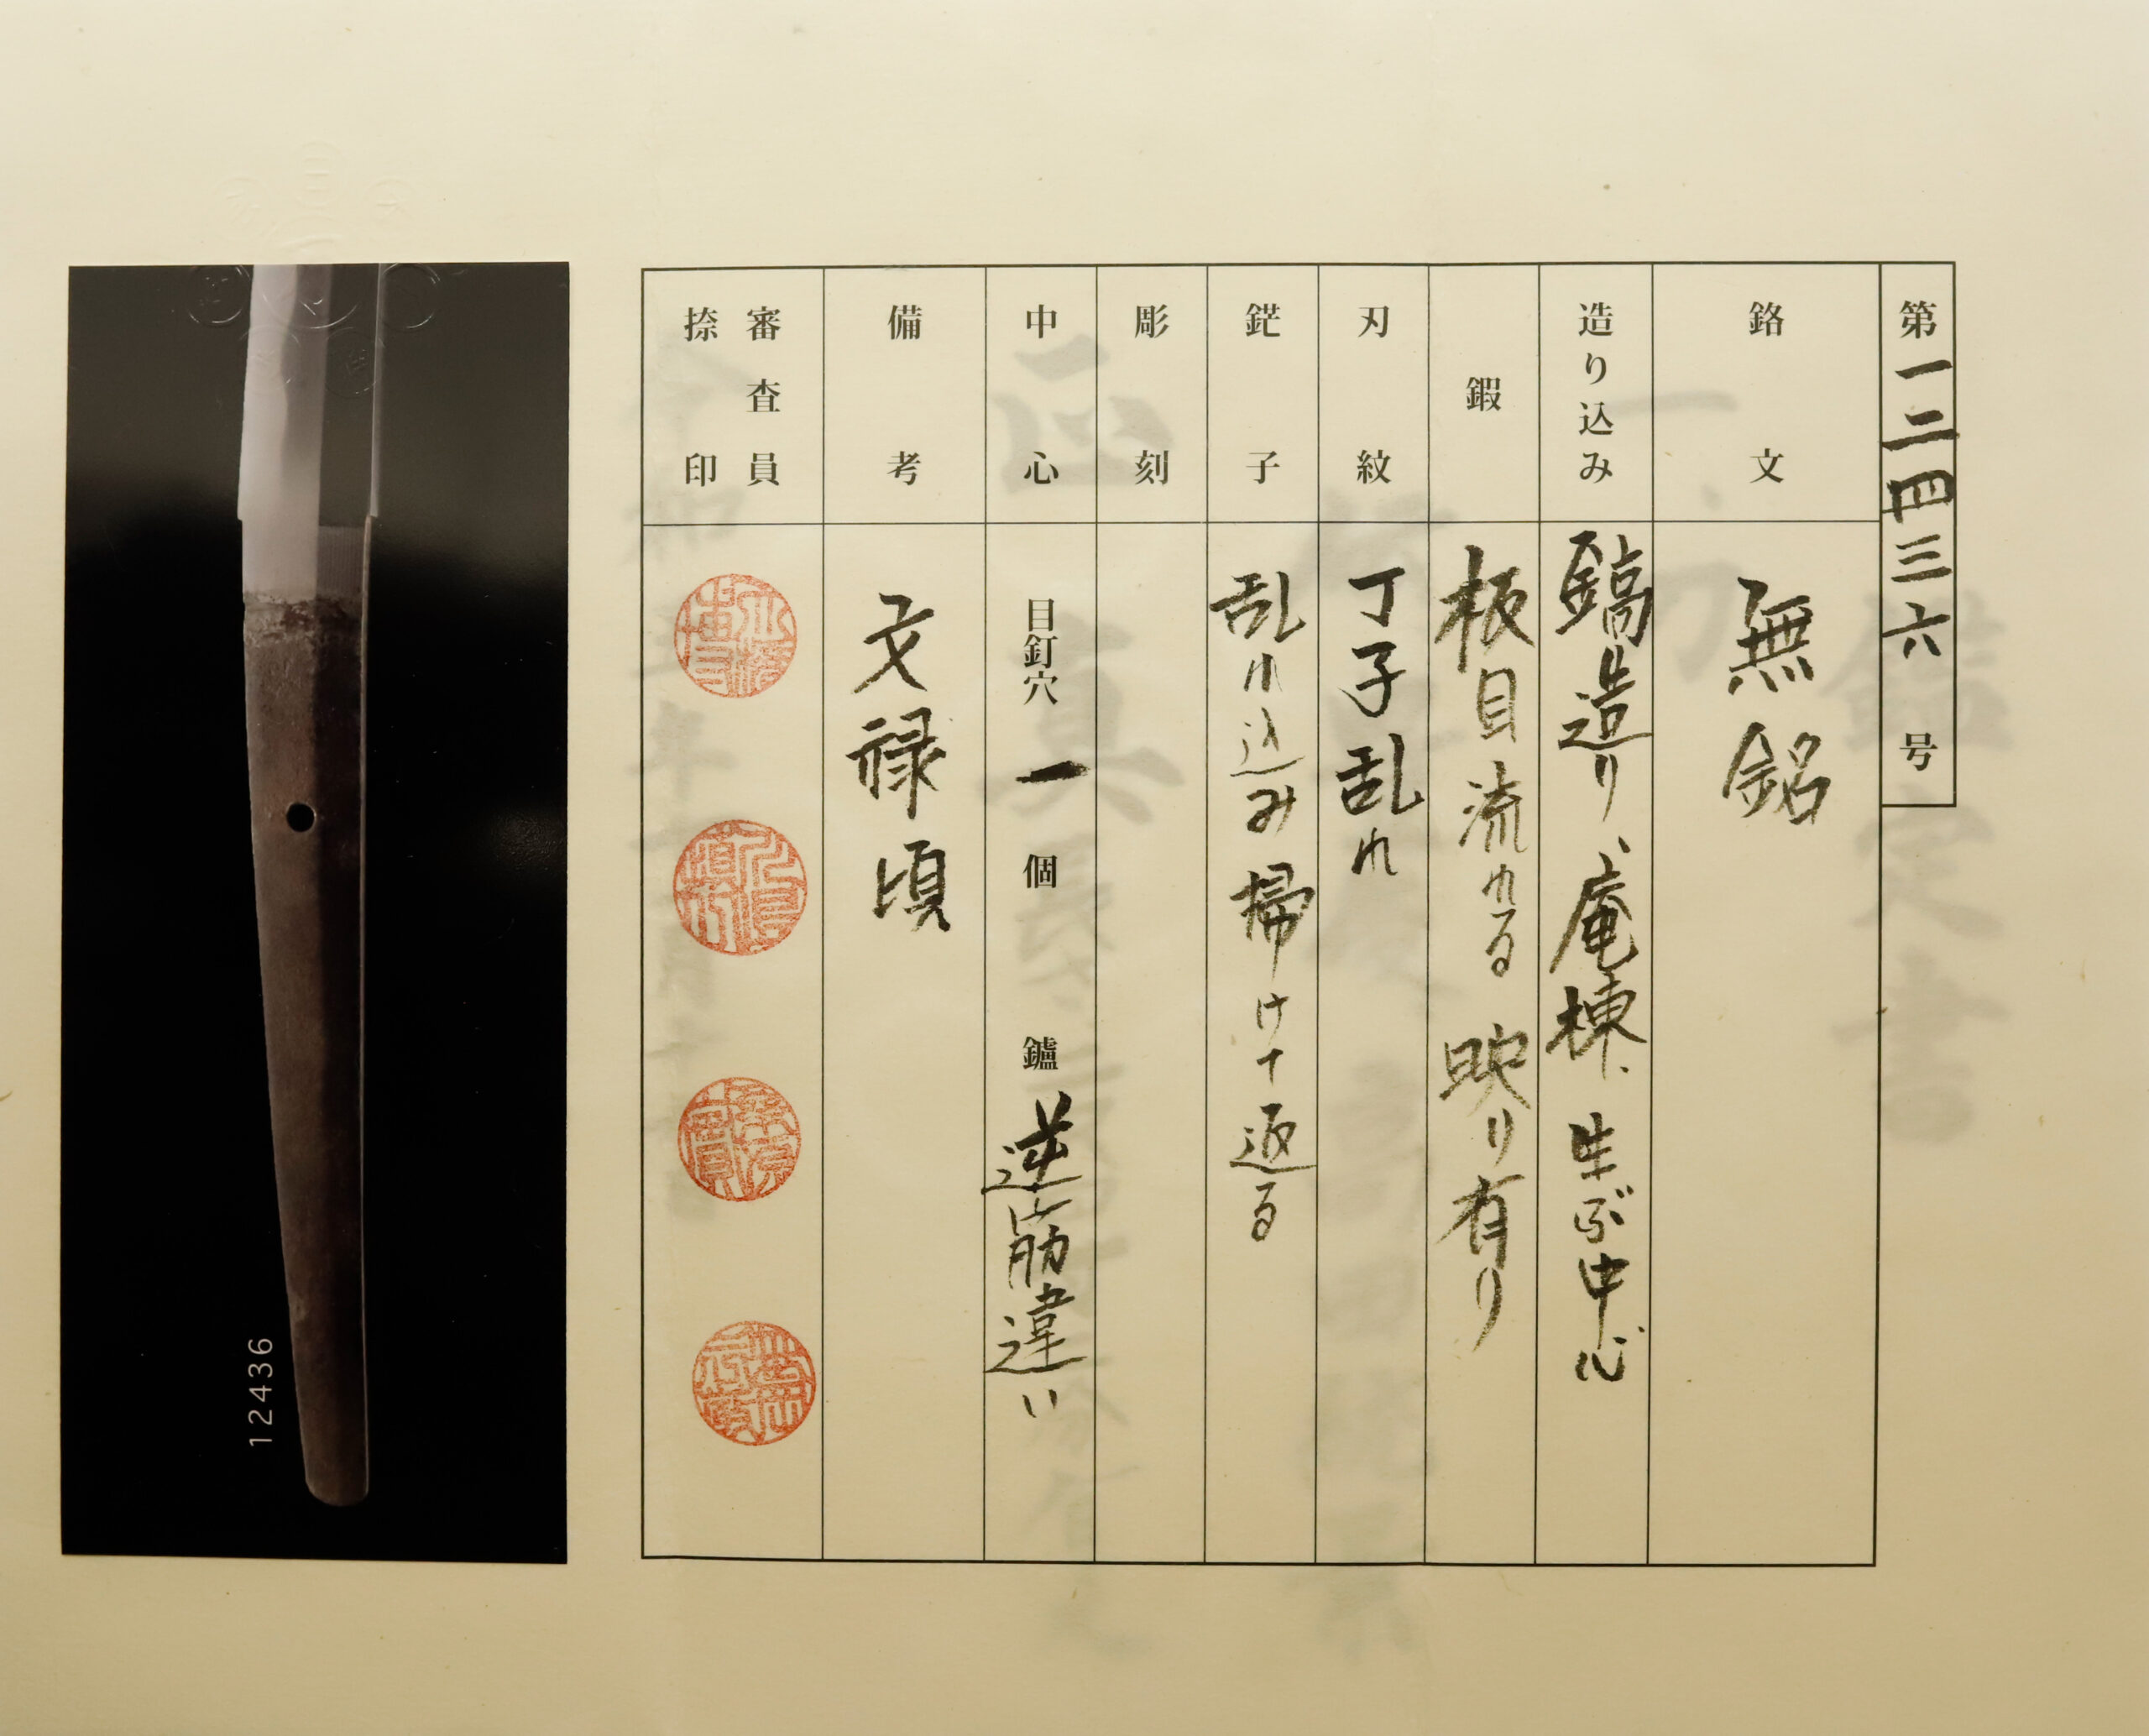 第一二四三六号
銘文 無銘
造り込み 鎬造り、庵棟、生ぶ中心
鍜 板目流れる 映り有り
刃紋 丁子乱れ
鋩子 乱れ込み掃けて返る
彫刻
中心 目釘穴 一 個 鑢 逆筋違い
備考 文禄頃
審査員
捺印
12436